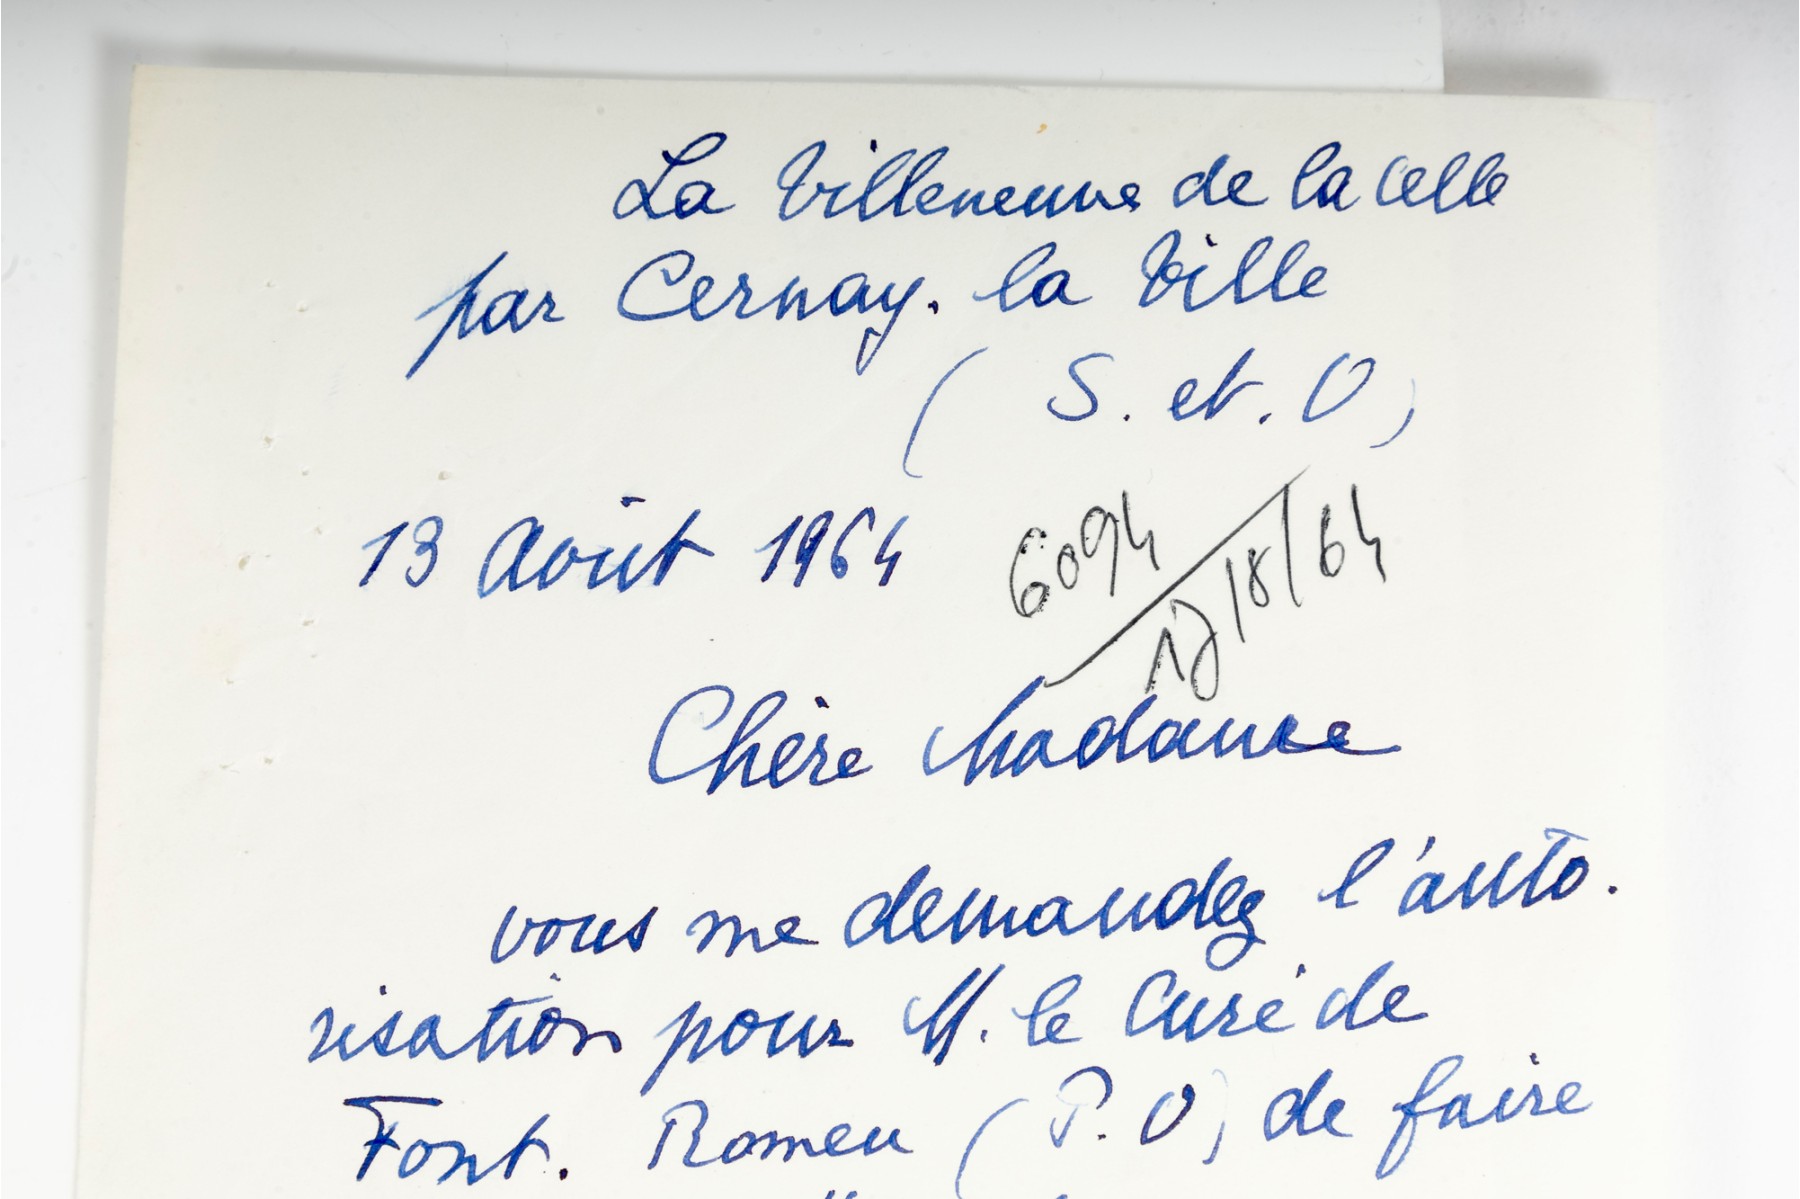 La Villeneuve de la Celle
par Cernay. la Ville
(S. et. O)
13 Août 1964
6094
17/8/64
Chère Madame
vous me demandez l'auto.
risation pour M. le Curé de
Font. Romeu (P.O) de faire